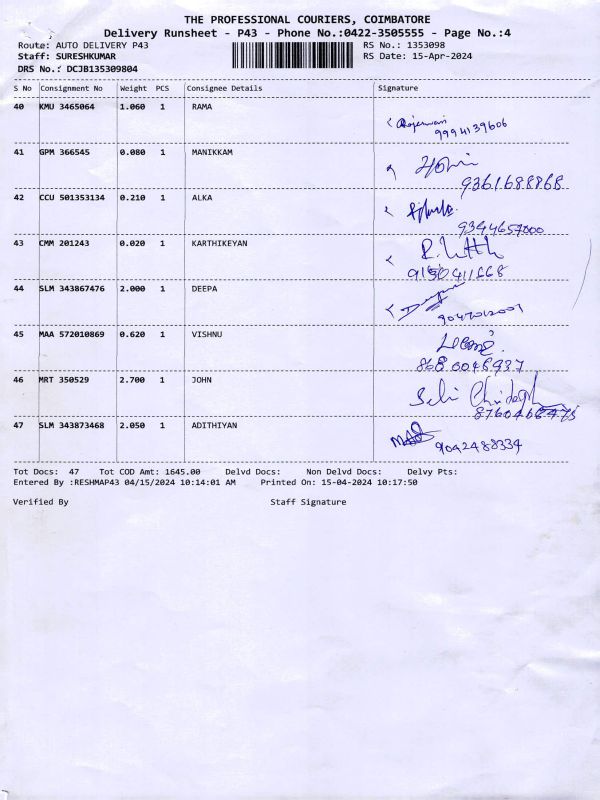 THE PROFESSIONAL COURIERS, COIMBATORE
Delivery Runsheet - P43 - Phone No.:0422-3505555 - Page No.:4
Route: AUTO DELIVERY P43 RS No.: 1353098
Staff: SURESHKUMAR RS Date: 15-Apr-2024
DRS No.: DCJB135309804
S No Consignment No Weight PCS Consignee Details Signature
40 KMU 3465064 1.060 1 RAMA
9994139606
41 GPM 366545 0.080 1 MANIKKAM
9361688868
42 CCU 501353134 0.210 1 ALKA
9344657000
43 CMM 201243 0.020 1 KARTHIKEYAN
44 SLM 343867476 2.000 1 DEEPA
45 MAA 572010869 0.620 1 VISHNU
46 MRT 350529 2.700 1 JOHN
47 SLM 343873468 2.050 1 ADITHIYAN
9042488334
Tot Docs: 47 Tot COD Amt: 1645.00 Delvd Docs: Non Delvd Docs: Delvy Pts:
Entered By :RESHMAP43 04/15/2024 10:14:01 AM Printed On: 15-04-2024 10:17:50
Verified By Staff Signature